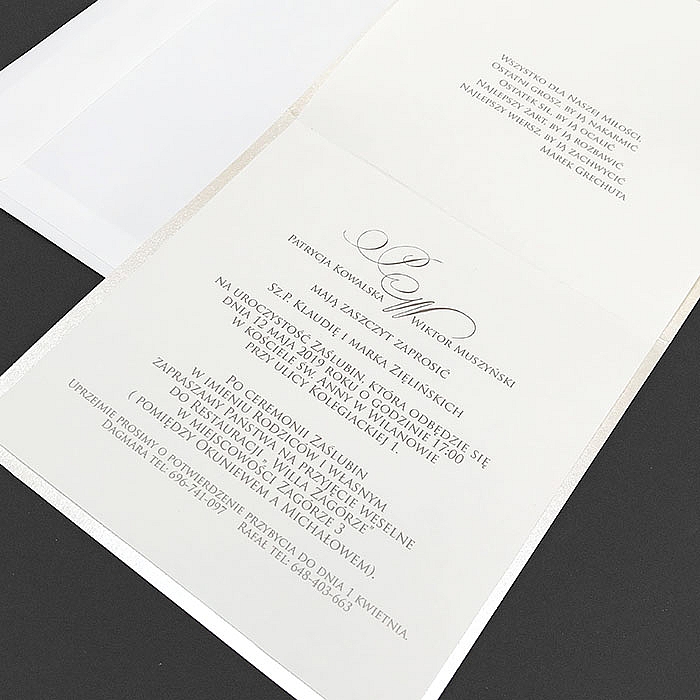 Wszystko dla Naszej Miłości,
Ostatni grosz, by ją nakarmić
Ostatek sił, by ją ocalić
Najlepszy żart, by ją rozbawić
Najlepszy wiersz, by ją zachwycić
Marek Grechuta
P
W
Patrycja Kowalska
Wiktor Muszyński
mają zaszczyt zaprosić
Sz.P. Klaudię i Marka Zielińskich
na uroczystość zaślubin, która odbędzie się
dnia 12 maja 2019 roku o godzinie 17:00
w Kościele Św. Anny w Wilanowie
przy ulicy Kolegiackiej 1.
Po ceremonii Zaślubin
w imieniu Rodziców i własnym
zapraszamy Państwa na przyjęcie weselne
do Restauracji „ Willa Zagórze"
w miejscowości Zagórze 3
( pomiędzy Okuniewem a Michałowem).
Uprzejmie prosimy o potwierdzenie przybycia do dnia 1 kwietnia.
Dagmara tel: 696-741-097 Rafał tel: 648-403-663